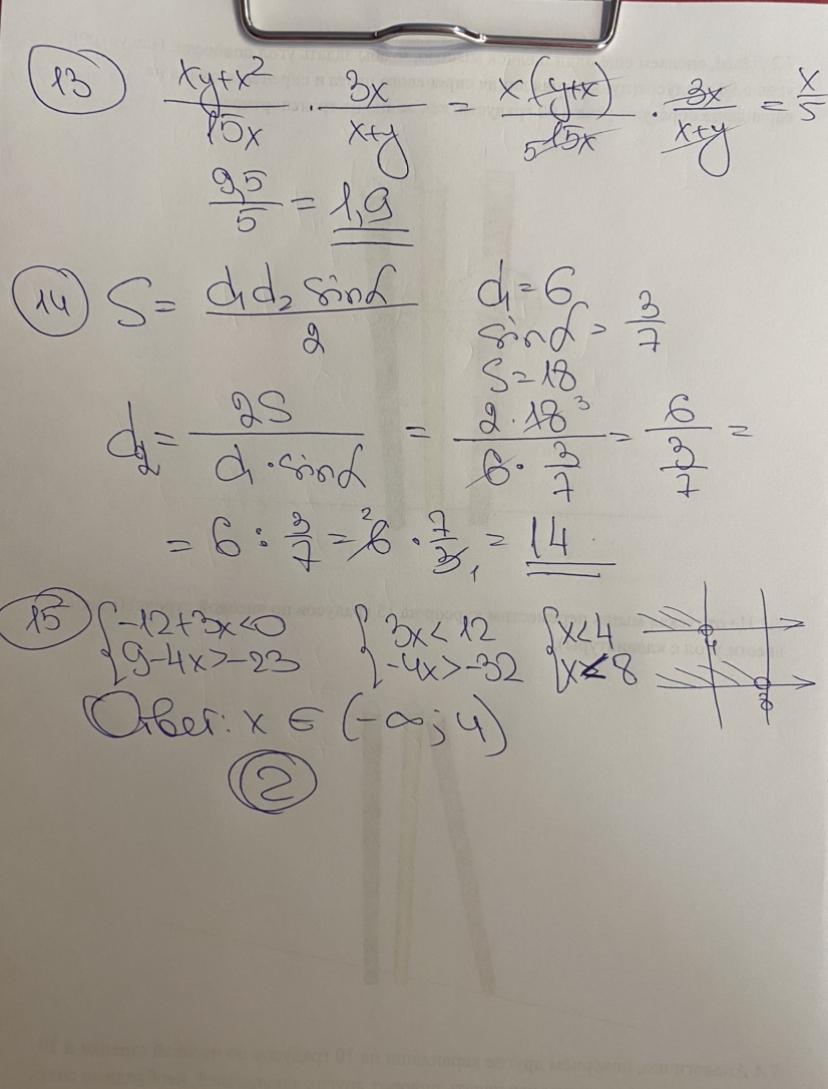 13 (xy+x²)/(15x) · 3x/(x+y) = x(y+x)/(5 15x) · 3x/(x+y) = x/5
9,5/5 = 1,9
14 S = d₁d₂ sinα/2 d₁=6
sinα = 3/7
S=18
d₂ = 2S/(d₁·sinα) = (2·18³)/(6·3/7) = 6/(3/7) =
= 6 : 3/7 = ²6 · 7/3₁ = 14
15 {-12+3x<0 {3x<12 {x<4 4
{9-4x>-23 {-4x>-32 {x<8 8
Ответ: x ∈ (-∞; 4)
2